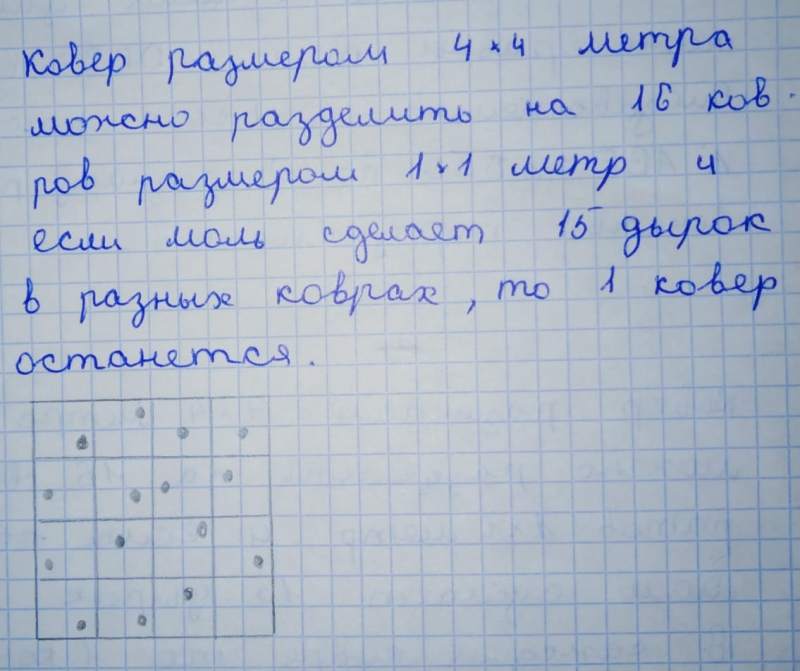 Ковер размером 4 × 4 метра
можно разделить на 16 ков-
ров размером 1 × 1 метр и
если моль сделает 15 дырок
в разных коврах, то 1 ковер
останется.